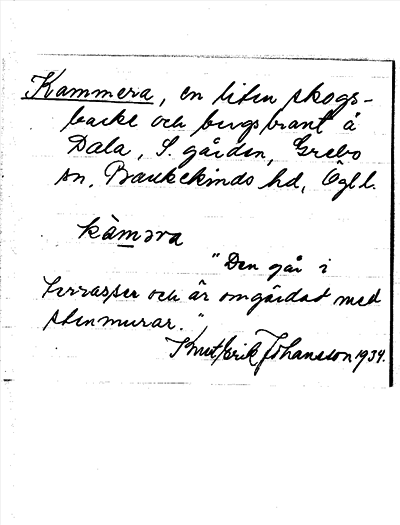 Kammera, en liten skogs-
backe och bergsbrant å
Dala, S. gården, Grebo
sn, Bankekinds hd, Ögl.
kàməra
"Den går i
terrasser och är omgärdad med
stenmurar."
Knut Erik Johansson 1934.